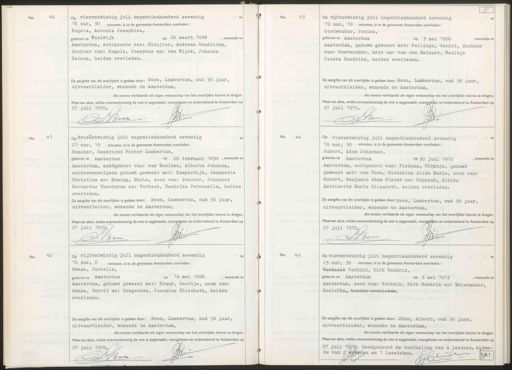 No. 40
Op vierentwintig juli negentienhonderd zeventig
18 uur, 30 minuten, is in de gemeente Amsterdam overleden:
Engels, Antonia Josephine,
geboren te Waalwijk op 26 maart 1888, wonende te
Amsterdam, echtgenote van:
dochter van: Engels, Josephus en: van Wijck, Johanna
beiden overleden.
De aangifte van dit overlijden is gedaan door: Boon, Lambertus, oud 58 jaar,
uitvaartleider, wonende te Amsterdam,
die daarvan verklaarde uit eigen wetenschap van het overlijden kennis te dragen.
Waarvan akte, welke overeenkomstig de wet is opgemaakt, voorgelezen en ondertekend te Amsterdam op
27 juli 1970.
No. 41
Op drieëntwintig juli negentienhonderd zeventig
21 uur, 15 minuten, is in de gemeente Amsterdam overleden:
Duncker, Hendrikus Pieter Lambertus,
geboren te Amsterdam op 26 februari 1894, wonende te
Amsterdam, echtgenoot van: van Weelden, Alberta Johanna,
eerder gehuwd geweest met: Kamperdijk, Jeannette
Christina en: Koning, Maria, zoon van: Duncker, Johannes
Bernardus Theodorus en: Verbeek, Hendrika Petronella, beiden
overleden.
De aangifte van dit overlijden is gedaan door: Boon, Lambertus, oud 58 jaar,
uitvaartleider, wonende te Amsterdam,
die daarvan verklaarde uit eigen wetenschap van het overlijden kennis te dragen.
Waarvan akte, welke overeenkomstig de wet is opgemaakt, voorgelezen en ondertekend te Amsterdam op
27 juli 1970.
No. 42
Op vijfentwintig juli negentienhonderd zeventig
16 uur, 0 minuten, is in de gemeente Amsterdam overleden:
Swaan, Cornelis,
geboren te Amsterdam op 16 mei 1888, wonende te
Amsterdam, gehuwd geweest met: Kraay, Geertje, zoon van:
Swaan, Gerrit en: Jannetje Elisabeth, beiden
overleden.
De aangifte van dit overlijden is gedaan door: Boon, Lambertus, oud 58 jaar,
uitvaartleider, wonende te Amsterdam,
die daarvan verklaarde uit eigen wetenschap van het overlijden kennis te dragen.
Waarvan akte, welke overeenkomstig de wet is opgemaakt, voorgelezen en ondertekend te Amsterdam op
27 juli 1970.
No. 43
Op vijfentwintig juli negentienhonderd zeventig
19 uur, 10 minuten, is in de gemeente Amsterdam overleden:
Oostwouder, Josina,
geboren te Amsterdam op 3 mei 1900, wonende te
Amsterdam, gehuwd geweest met: Gerrit, dochter
van: Oostwouder, Arie en: Neeltje
Jacoba Hendrika, beiden overleden.
De aangifte van dit overlijden is gedaan door: Boon, Lambertus, oud 58 jaar,
uitvaartleider, wonende te Amsterdam,
die daarvan verklaarde uit eigen wetenschap van het overlijden kennis te dragen.
Waarvan akte, welke overeenkomstig de wet is opgemaakt, voorgelezen en ondertekend te Amsterdam op
27 juli 1970.
No. 44
Op vierentwintig juli negentienhonderd zeventig
18 uur, 30 minuten, is in de gemeente Amsterdam overleden:
Hubert, Adam Johannes,
geboren te Amsterdam op 30 juni 1910, wonende te
Amsterdam, echtgenoot van: Trijntje, gehuwd
geweest met: van Veen, Maria, zoon van:
Hubert, Benjamin Adam Pieter en:
Antoinetta Maria Elisabeth, beiden overleden.
De aangifte van dit overlijden is gedaan door: Boon, Lambertus, oud 58 jaar,
uitvaartleider, wonende te Amsterdam,
die daarvan verklaarde uit eigen wetenschap van het overlijden kennis te dragen.
Waarvan akte, welke overeenkomstig de wet is opgemaakt, voorgelezen en ondertekend te Amsterdam op
27 juli 1970.
No. 45
Op vierentwintig juli negentienhonderd zeventig
23 uur, 30 minuten, is in de gemeente Amsterdam overleden:
Verkaik, Dirk Hendrik,
geboren te Amsterdam op 3 mei 1913, wonende te
Amsterdam, zoon van: Verkaik, Dirk Hendrik en: Molenmaker,
Roelofke, beiden overleden.
De aangifte van dit overlijden is gedaan door: Boon, Lambertus, oud 58 jaar,
uitvaartleider, wonende te Amsterdam,
die daarvan verklaarde uit eigen wetenschap van het overlijden kennis te dragen.
Waarvan akte, welke overeenkomstig de wet is opgemaakt, voorgelezen en ondertekend te Amsterdam op
27 juli 1970. Goedgekeurd de doorhaling van 8 letters,
de van 2 woorden en 1 leesteken.